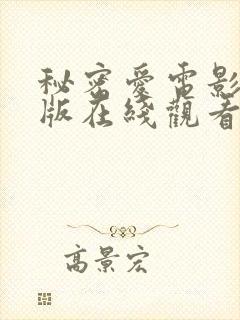 秘密愛電影
版在綫觀看
高景宏